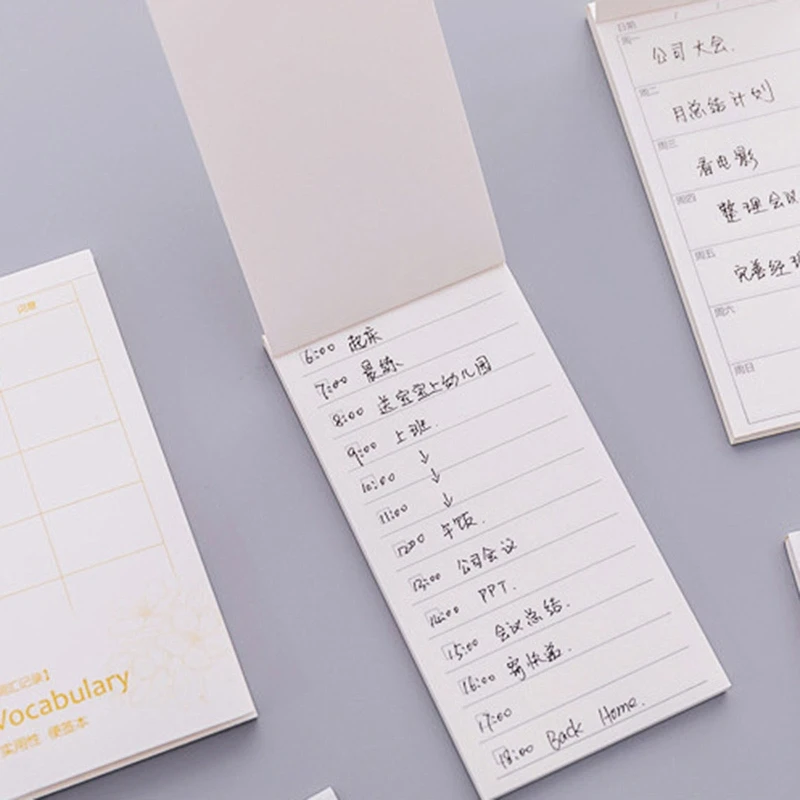 词意
词汇记录】
Vocabulary
实用性 便签本
6:00 起床
7:00 晨练
8:00 送宝宝上幼儿园
9:00 上班.
10:00 ↓
↓
11:00 ↓
12:00 午饭.
13:00 公司会议
14:00 PPT.
15:00 会议总结.
16:00 寄快递.
17:00
18:00 Back Home.
日期 / /
周一
公司大会.
周二
月总结计划
周三
看电影
周四
整理会议
周五
完善经理
周六
周日